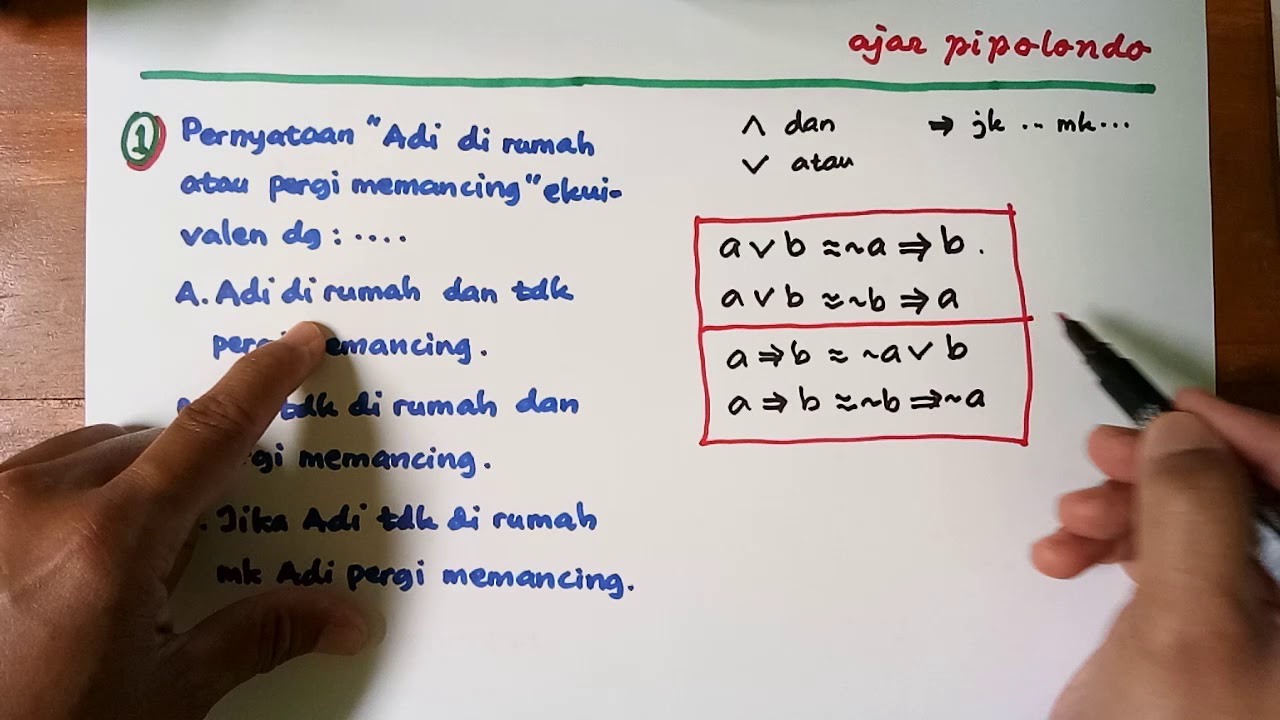 ajar pipolondo
1 Pernyataan "Adi di rumah
atau pergi memancing" ekui-
valen dg : ....
A. Adi di rumah dan tdk
memancing.
tdk di rumah dan
memancing.
. Jika Adi tdk di rumah
mk Adi pergi memancing.
∧ dan
∨ atau
⇒ jk .. mk...
a ∨ b ≈ ~a ⇒ b .
a ∨ b ≈ ~b ⇒ a
a ⇒ b ≈ ~a ∨ b
a ⇒ b ≈ ~b ⇒ ~a